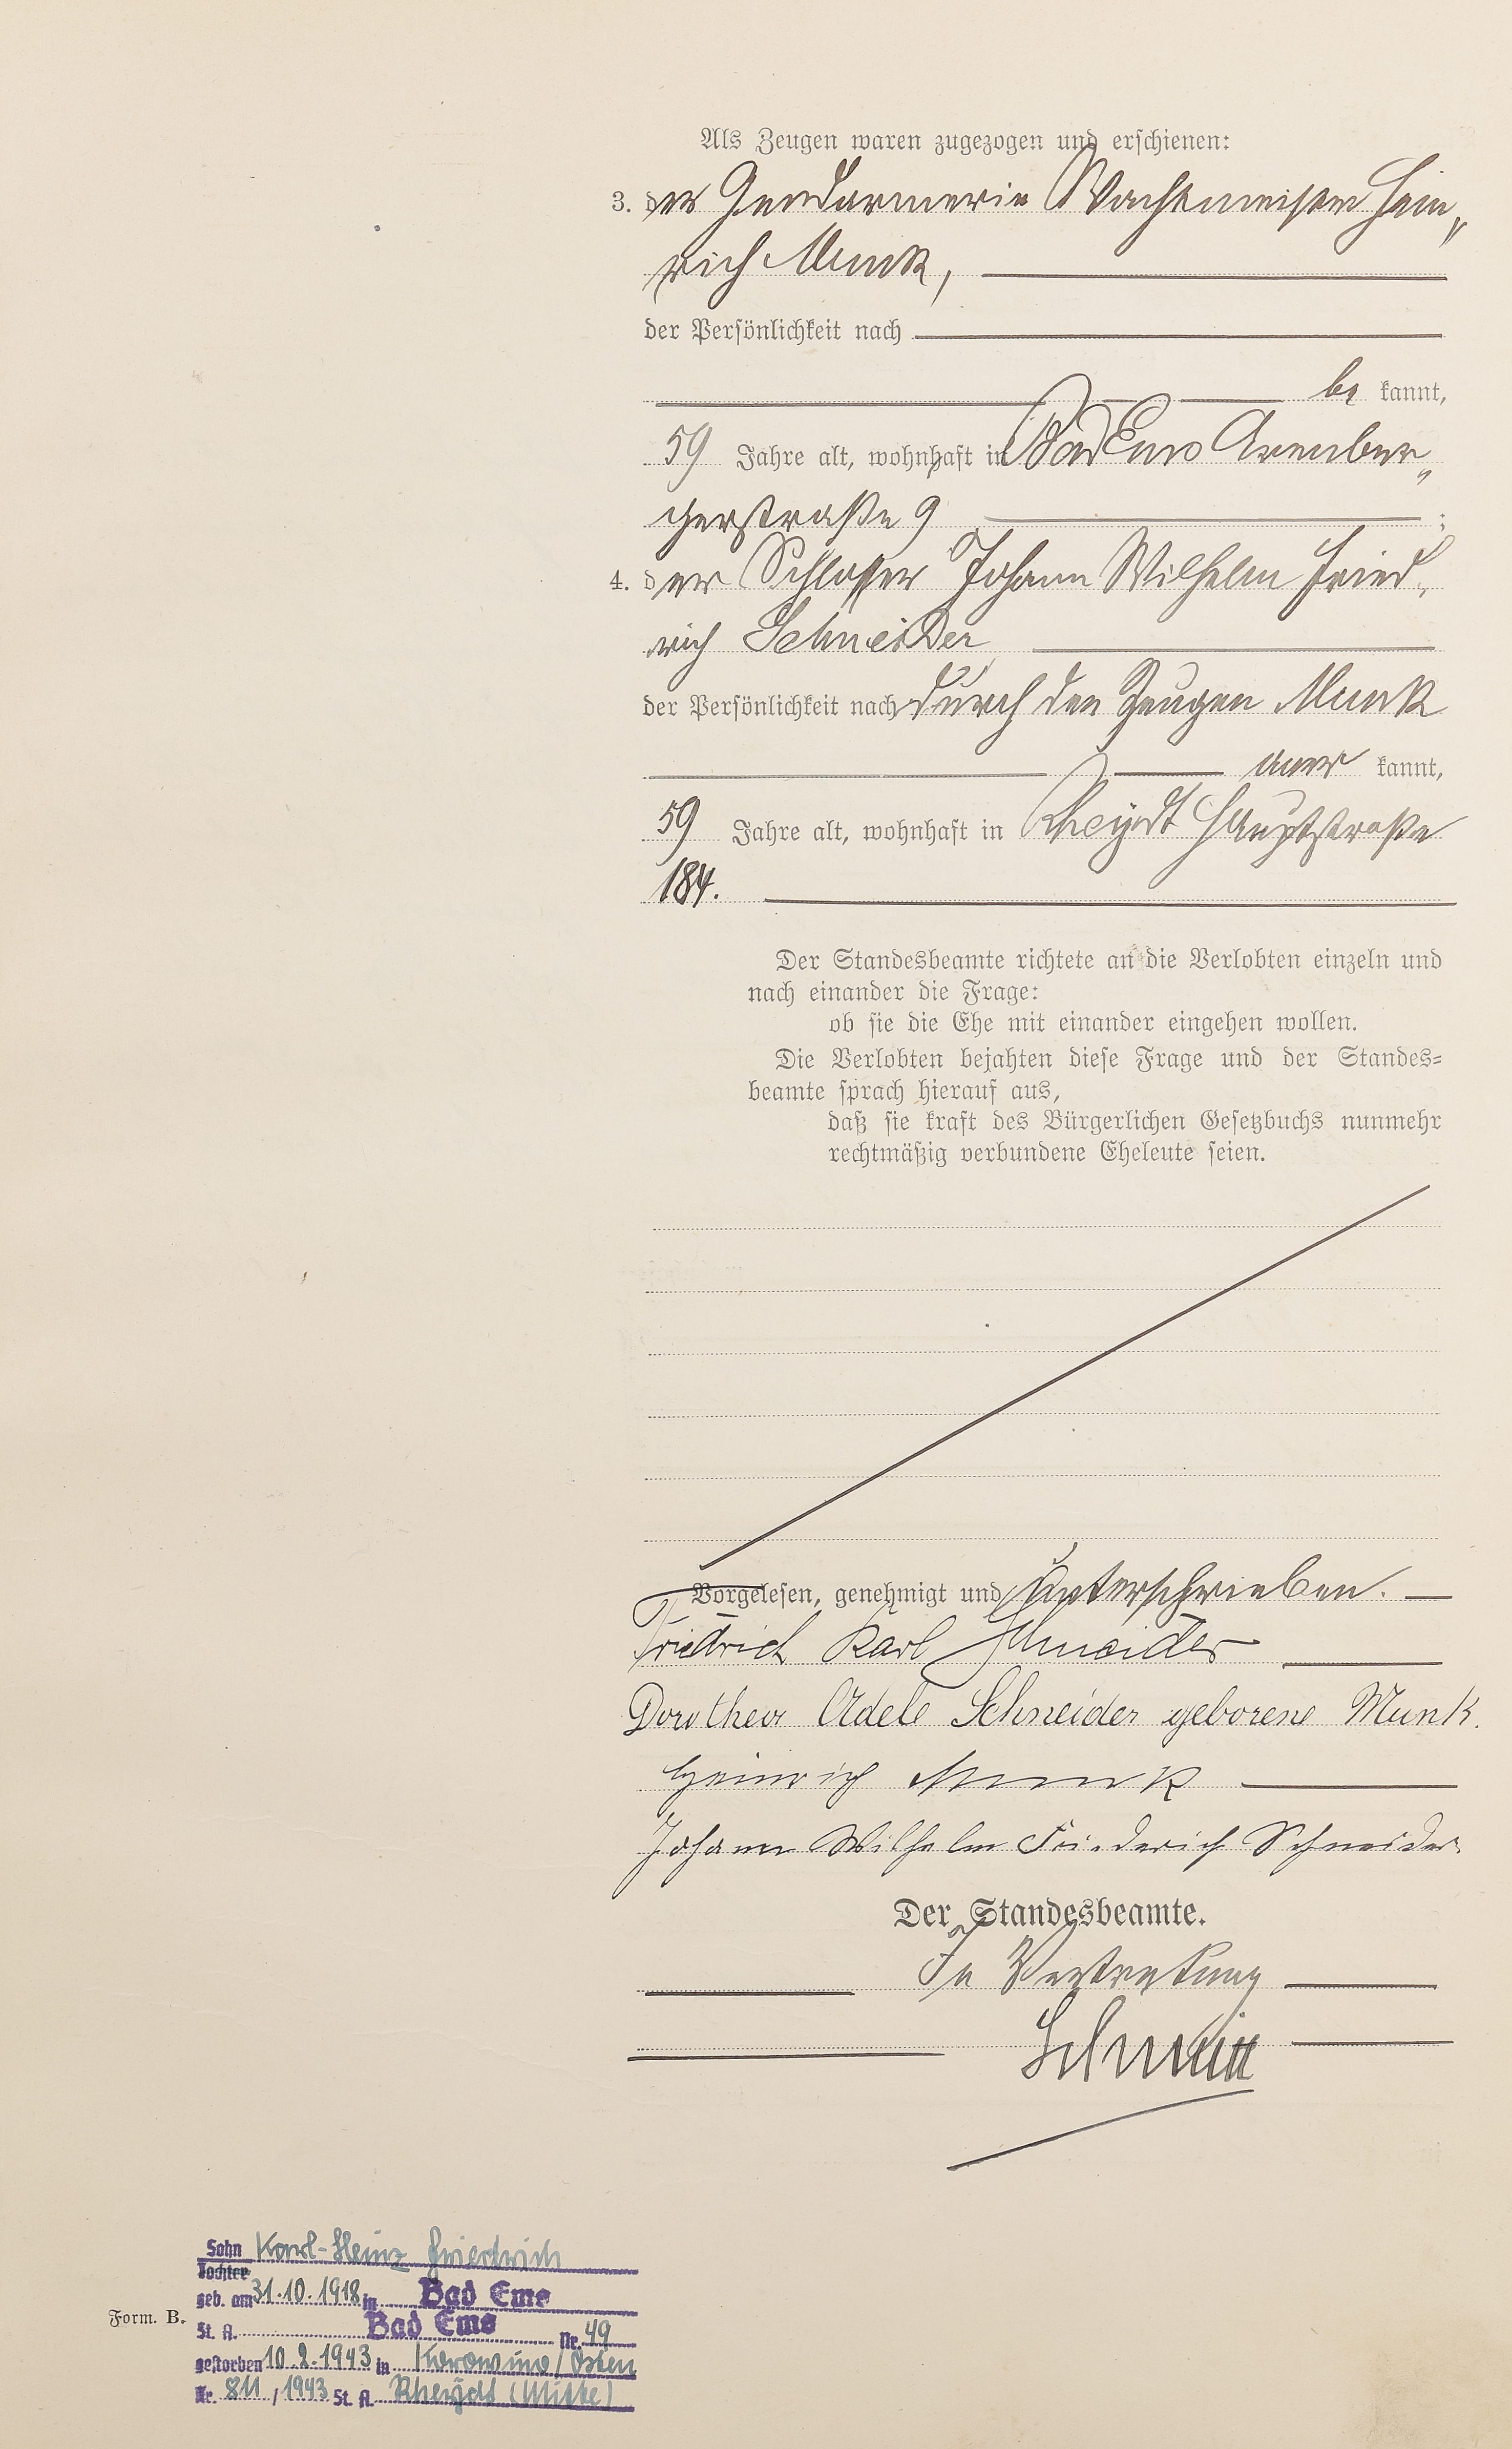 Als Zeugen waren zugezogen und erschienen:
3. der Gendarmerie Wachtmeister Hein„
rich Munk,
der Persönlichkeit nach
be kannt,
59 Jahre alt, wohnhaft in Bad Ems Arenber„
gerstraße 9 ;
4. der Schlosser Johann Wilhelm Fried„
rich Schneider
der Persönlichkeit nach durch den Zeugen Munk
aner kannt,
59 Jahre alt, wohnhaft in Rheydt Hauptstraße
184.
Der Standesbeamte richtete an die Verlobten einzeln und
nach einander die Frage:
ob sie die Ehe mit einander eingehen wollen.
Die Verlobten bejahten diese Frage und der Standes=
beamte sprach hierauf aus,
daß sie kraft des Bürgerlichen Gesetzbuchs nunmehr
rechtmäßig verbundene Eheleute seien.
Vorgelesen, genehmigt und unterschrieben.
Friedrich Karl Schneider
Dorothea Adele Schneider geborene Munk.
Heinrich Munk
Johann Wilhelm Friederich Schneider.
Der Standesbeamte.
In Vertretung
Sohn Karl-Heinz Friedrich
Tochter
geb. am 31.10.1918 in Bad Ems
Form. B.
St. A. Bad Ems Nr. 49
gestorben 10.2.1943 in /Osten
Nr. 811 / 1943 St. A. Rheydt (Mitte)